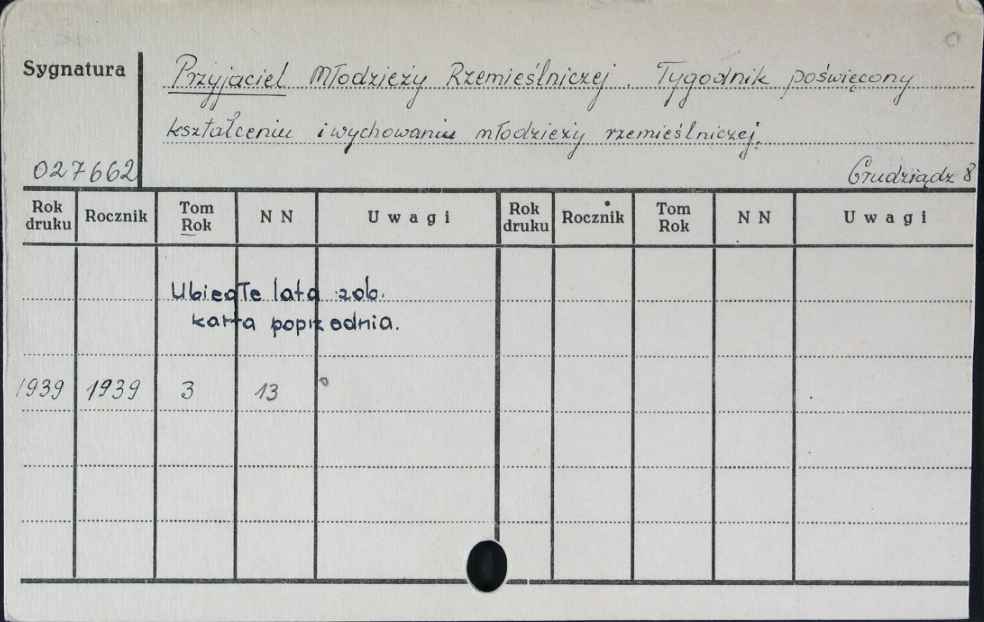 Sygnatura
Przyjaciel Młodzieży Rzemieślniczej. Tygodnik poświęcony
kształceniu i wychowaniu młodzieży rzemieślniczej.
027662
Grudziądz 8
Rok druku Rocznik Tom Rok N N Uwagi Rok druku Rocznik Tom Rok N N Uwagi
Ubiegłe lata zob.
karta poprzednia.
1939 1939 3 13